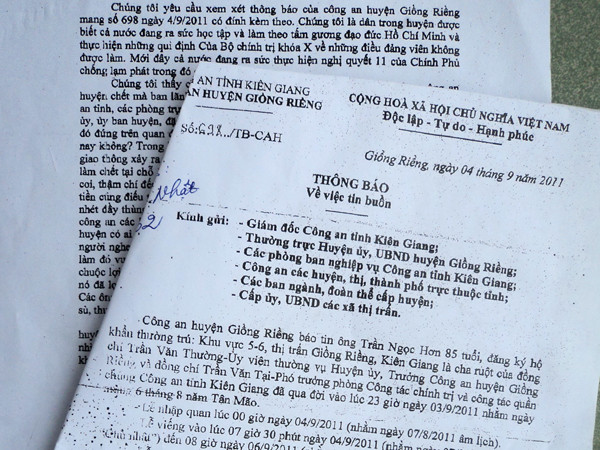 Chúng tôi yêu cầu xem xét thông báo của công an huyện Giồng Riềng
mang số 698 ngày 4/9/2011 có đính kèm theo. Chúng tôi là dân trong huyện được
biết cả nước đang ra sức học tập và làm theo tấm gương đạo đức Hồ Chí Minh và
thực hiện những qui định Của Bộ chính trị khóa X về những điều đảng viên không
được làm. Mới đây cả nước đang ra sức thực hiện nghị quyết 11 của Chính Phủ
chống lạm phát trong đó
Chúng tôi thấy
huyện chết mà ban lãn
an tỉnh, các phòng trự
ủy, ủy ban huyện, đà
đó đúng trên quan
nay không? Trong
giao thông xảy ra
làm chết tại chỗ
coi, thậm chí đế
tiền cúng điếu
nhét đầy thùn
công an các
huyện có ai
người nghe
làm đó v
chuộc lợi
nó đã lợ
Các ôn
sù, thu
huyệ
như
AN TỈNH KIÊN GIANG
AN HUYỆN GIỒNG RIỀNG
Số: 698.../TB-CAH
CỘNG HOÀ XÃ HỘI CHỦ NGHĨA VIỆT NAM
Độc lập - Tự do - Hạnh phúc
Giồng Riềng, ngày 04 tháng 9 năm 2011
THÔNG BÁO
Về việc tin buồn
Nhật
Kính gửi: - Giám đốc Công an tỉnh Kiên Giang;
- Thường trực Huyện ủy, UBND huyện Giồng Riềng;
- Các phòng ban nghiệp vụ Công an tỉnh Kiên Giang;
- Công an các huyện, thị, thành phố trực thuộc tỉnh;
- Các ban ngành, đoàn thể cấp huyện;
- Cấp ủy, UBND các xã thị trấn.
Công an huyện Giồng Riềng báo tin ông Trần Ngọc Hơn 85 tuổi, đăng ký hộ
khẩu thường trú: Khu vực 5-6, thị trấn Giồng Riềng, Kiên Giang là cha ruột của đồng
chí Trần Văn Thường-Ủy viên thường vụ Huyện ủy, Trưởng Công an huyện Giồng
Riềng và đồng chí Trần Văn Tại-Phó trưởng phòng Công tác chính trị và công tác quần
chúng Công an tỉnh Kiên Giang đã qua đời vào lúc 23 giờ ngày 03/9/2011 nhằm ngày
mùng 6 tháng 8 năm Tân Mão.
- Lễ nhập quan lúc 00 giờ ngày 04/9/2011 (nhằm ngày 07/8/2011 âm lịch).
- Lễ viếng vào lúc 07 giờ 30 phút ngày 04/9/2011 (nhằm ngày
đến 08 giờ ngày 06/9/2011